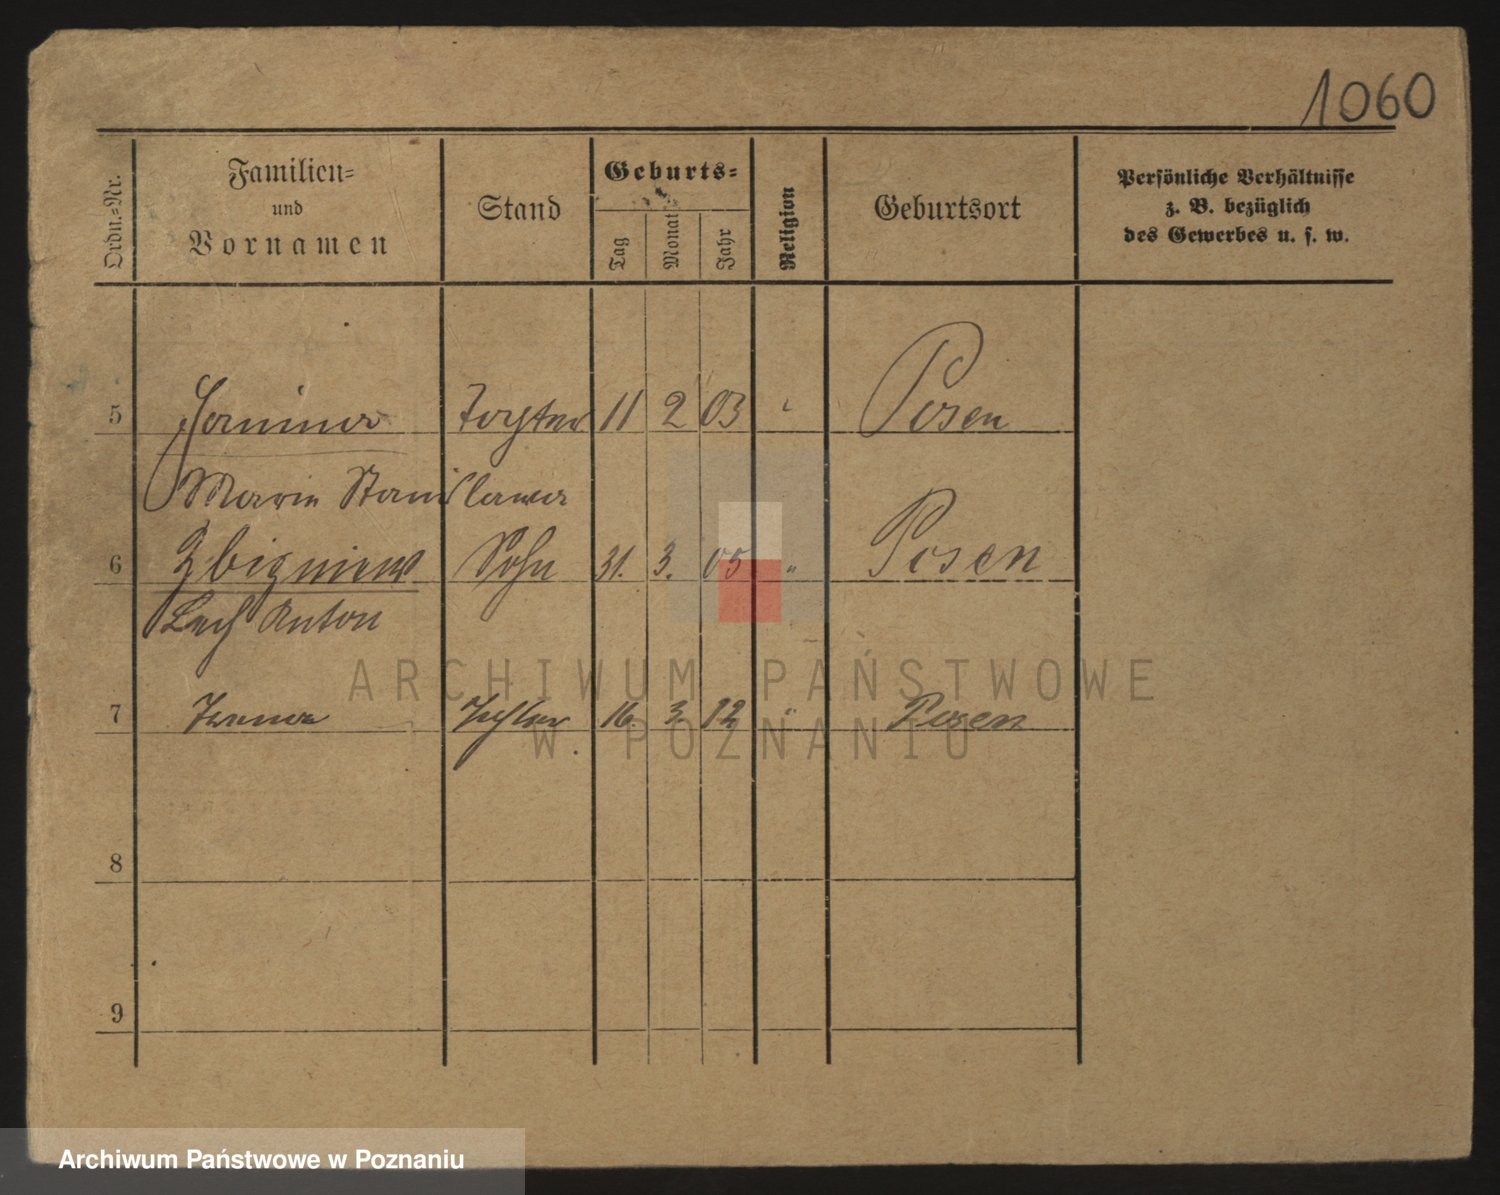 1060
Ordn.-Nr.
Familien-
und
Vornamen
Stand
Geburts-
Tag
Monat
Jahr
Religion
Geburtsort
Persönliche Verhältnisse
z. B. bezüglich
des Gewerbes u. s. w.
5 Janina Tochter 11 2 03 " Posen
Maria Stanislawa
6 Zbigniew Sohn 31. 3. 05 " Posen
Lech Anton
7 Irena Tochter 16. 3. 12 " Posen
8
9
ARCHIWUM PAŃSTWOWE
W POZNANIU
Archiwum Państwowe w Poznaniu